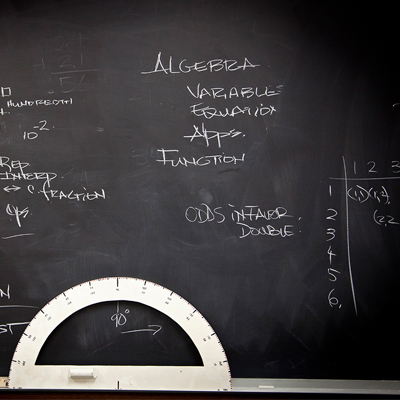 HUNDREDTH
10⁻²
REP
INTERP.
↔ C. FRACTION
ALGEBRA
VARIABLE
EQUATION
Apps.
FUNCTION
ODDS IN FAVOR.
DOUBLE.
1 2 3
1 (1,1) (1,2),
2 (2,2
3
4
5
6,
90°